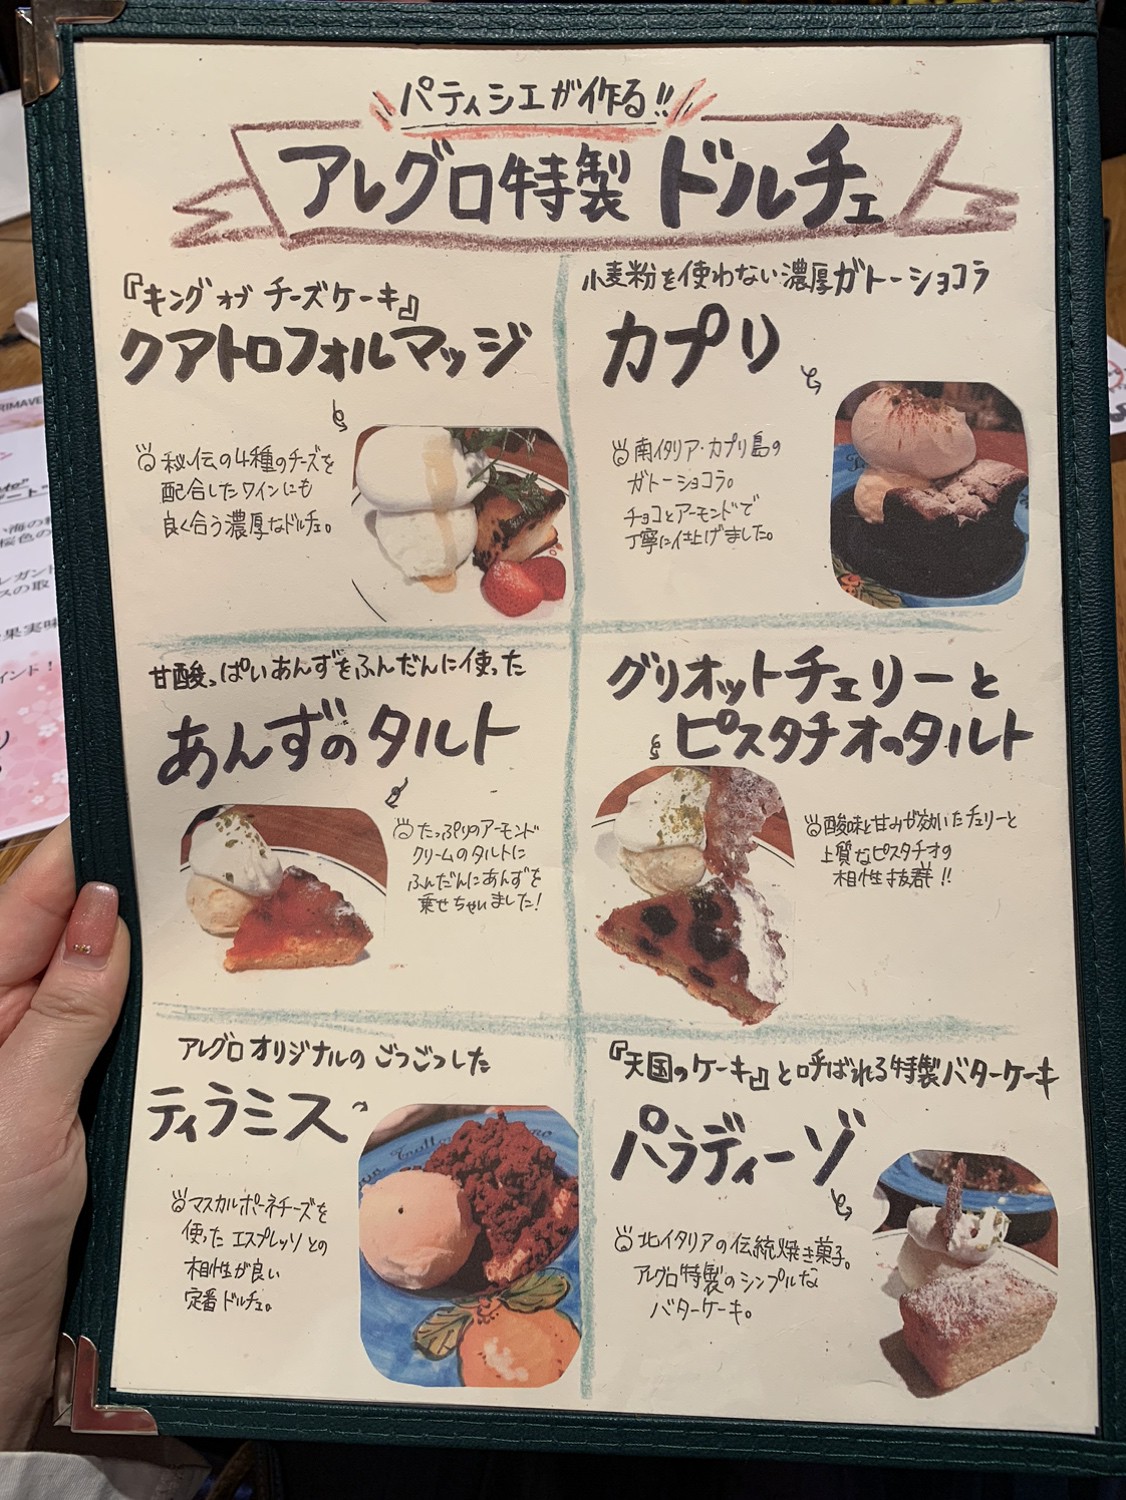 パティシエが作る!!
アレグロ特製 ドルチェ
『キング オブ チーズケーキ』
クアトロフォルマッジ
秘伝の4種のチーズを
配合したワインにも
良く合う濃厚なドルチェ。
小麦粉を使わない濃厚ガトーショコラ
カプリ
南イタリア・カプリ島の
ガトーショコラ。
チョコとアーモンドで
丁寧に仕上げました。
甘酸っぱいあんずをふんだんに使った
あんずのタルト
たっぷりのアーモンド
クリームのタルトに
ふんだんにあんずを
乗せちゃいました!
グリオットチェリーと
ピスタチオのタルト
酸味と甘みが効いたチェリーと
上質なピスタチオの
相性抜群!!
アレグロオリジナルのごつごつした
ティラミス
マスカルポーネチーズを
使った エスプレッソとの
相性が良い
定番ドルチェ。
『天国のケーキ』と呼ばれる特製バターケーキ
パラディーゾ
北イタリアの伝統焼き菓子。
アレグロ特製のシンプルな
バターケーキ。
RIMAVE
い海の
桜色の
レガント
スの取
果実味
イント!